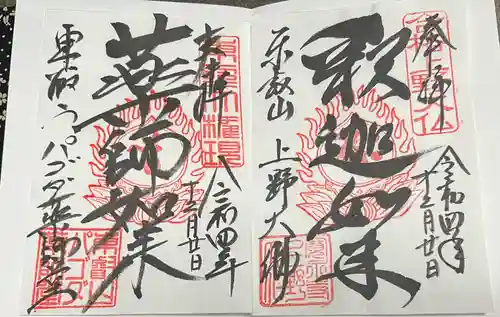 奉拝
令和四年
十二月廿日
釈迦如来
東叡山 上野大佛
奉拝
令和四年
十二月廿日
薬師如来
東叡山パゴダ薬師堂